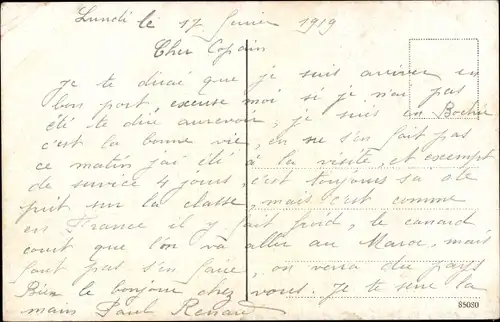 Lundi le 17 fevrier 1919
Cher Copain
Je te dirai que je suis arriver en
bon port, excuse moi si je n'ai pas
été te dire aurevoir, je suis en Bochie
c'est la bonne vie, on ne s'en fait pas
ce matin j'ai été à la visite, et exempt
de survice 4 jours, c'est toujours sa de
prit sur la classe, mais c'est comme
en France il y fait froid, le canard
court que l'on va aller au Maroc, mais
faut pas s'en faire, on verra du pays
Bien le bonjour chez vous. Je te serre la
main Paul Renard
85080